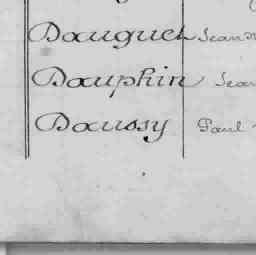 Dauguet Jean
Dauphin Jean
Daussy Paul